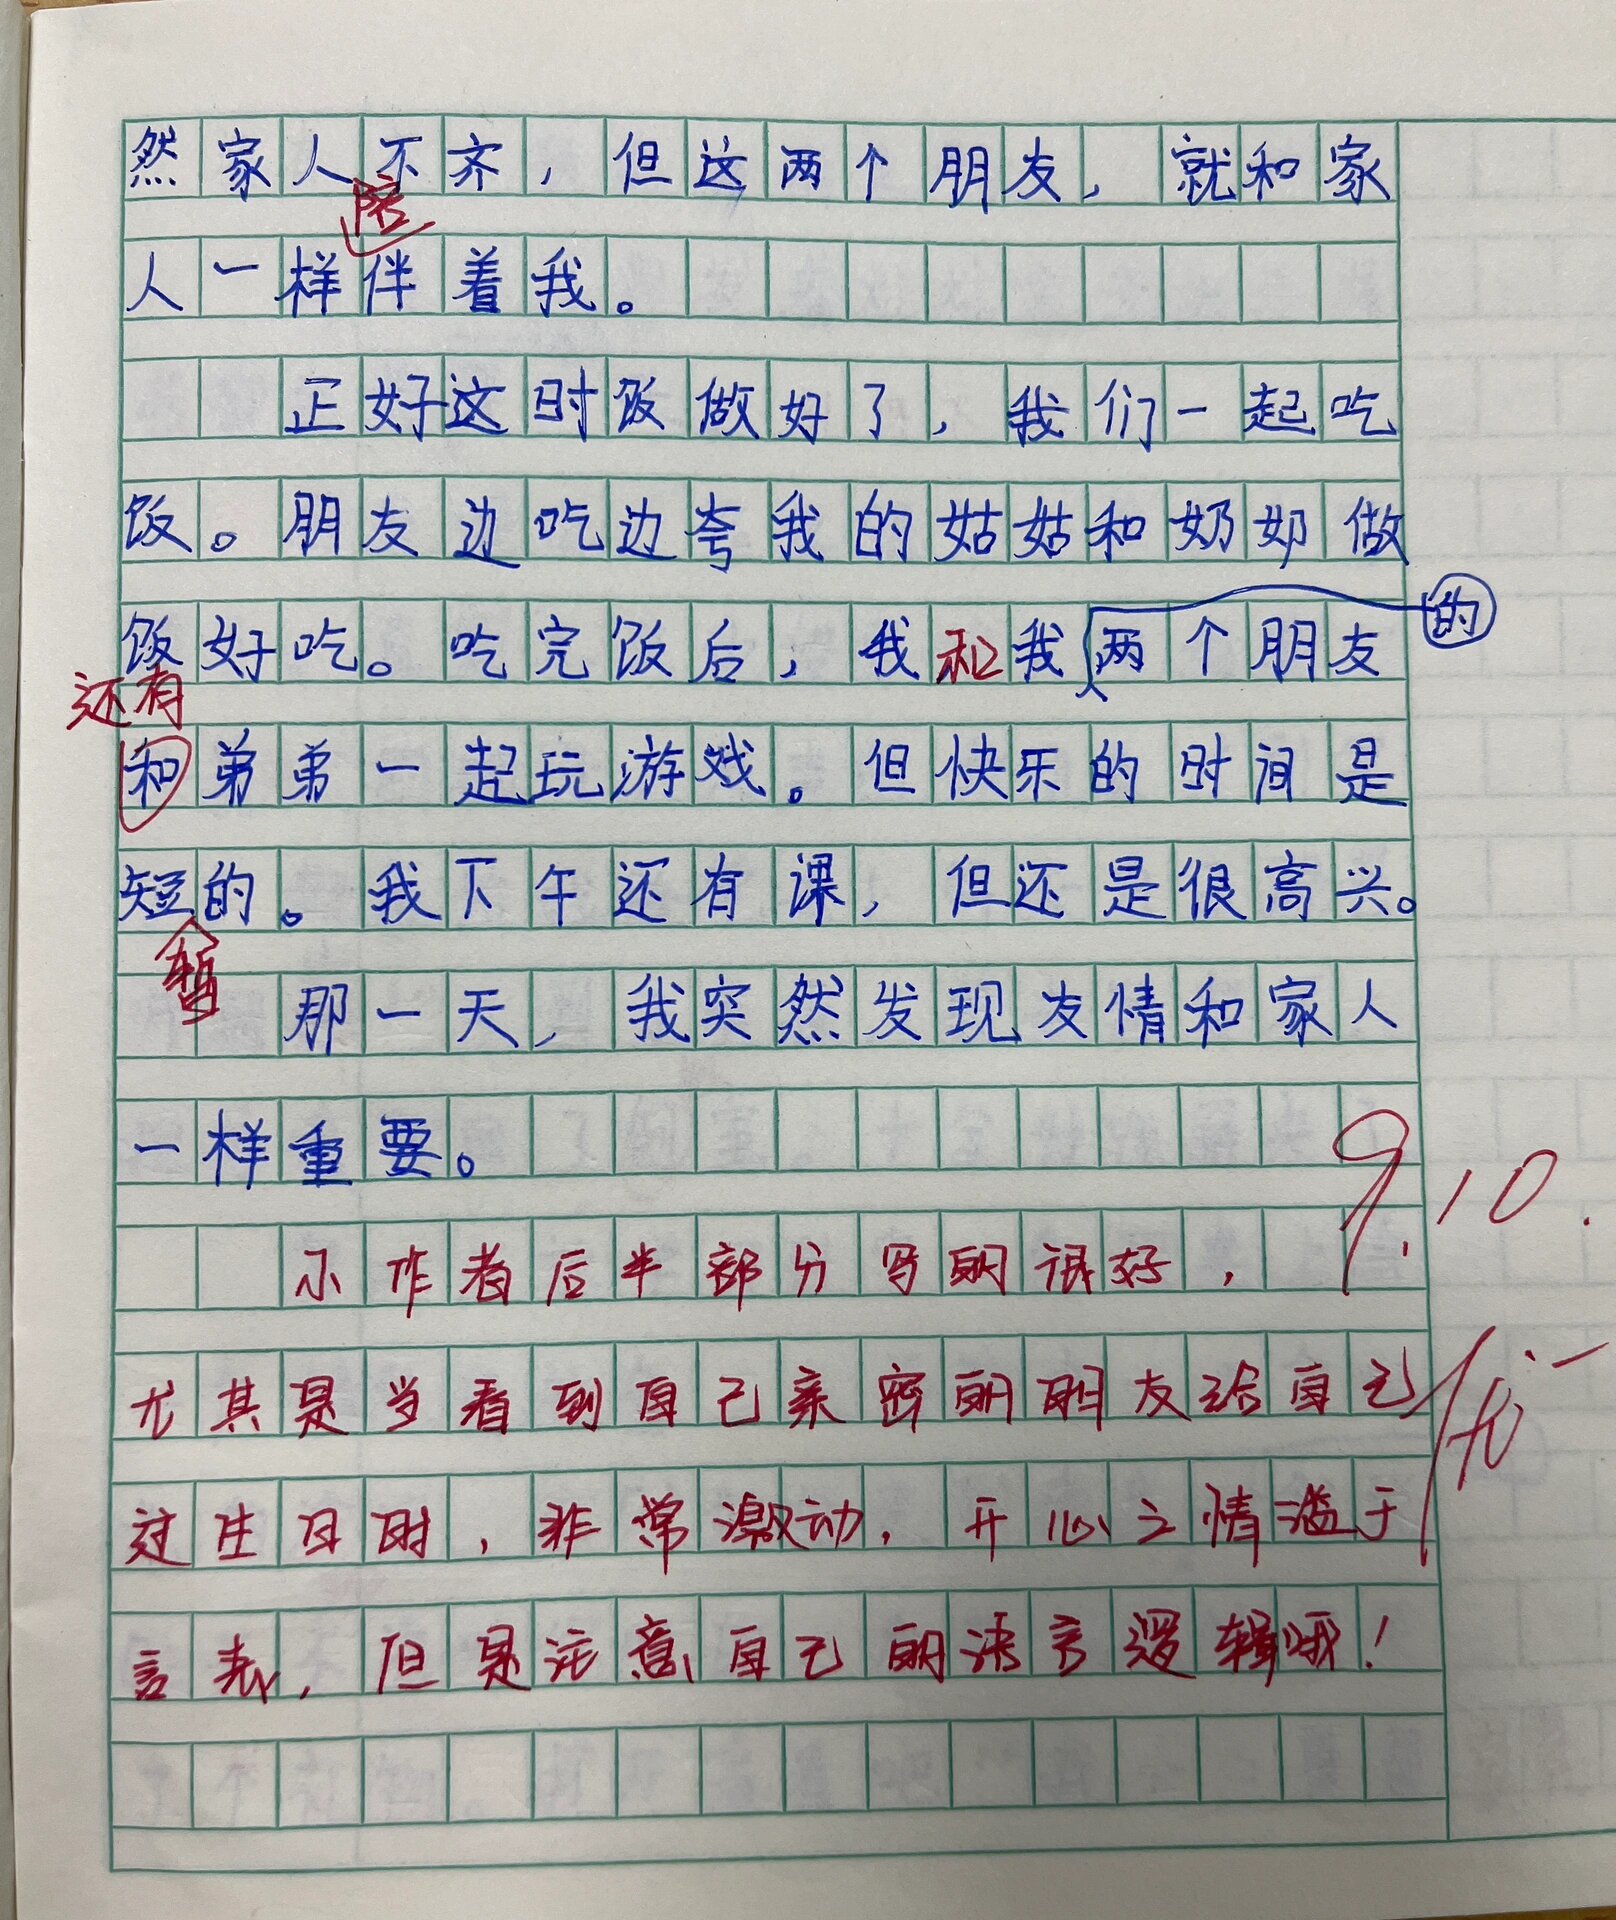 然家人不齐，但这两个朋友，就和家
陪
人一样伴着我。
正好这时饭做好了，我们一起吃
饭。朋友边吃边夸我的姑姑和奶奶做
的
饭好吃。吃完饭后，我和我两个朋友
还有
和弟弟一起玩游戏。但快乐的时间是
短的。我下午还有课，但还是很高兴。
暂
那一天，我突然发现友情和家人
一样重要。
9.10.
小作者后半部分写的很好，
尤其是当看到自己亲密的朋友给自己
优-
过生日时，非常激动，开心之情溢于
言表，但是注意自己的语言逻辑哦！